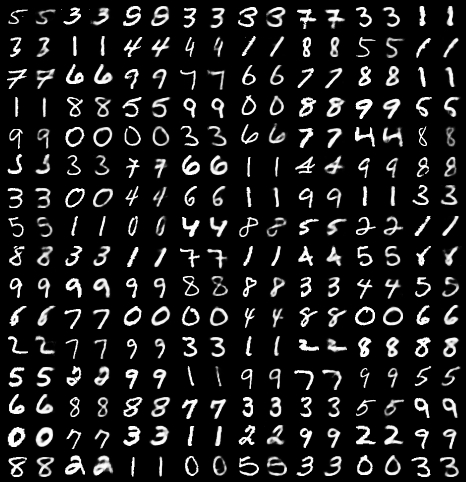 5 5 3 3 8 8 3 3 3 3 7 7 3 3 1 1
3 3 1 1 4 4 4 4 1 1 8 8 5 5 1 1
7 7 6 6 9 9 7 7 6 6 7 7 8 8 1 1
1 1 8 8 5 5 9 9 0 0 8 8 9 9 5 5
9 9 0 0 0 0 3 3 6 6 7 7 4 4 8 8
3 3 3 3 7 7 6 6 1 1 4 4 9 9 8 8
3 3 0 0 4 4 6 6 1 1 9 9 1 1 3 3
5 5 1 1 0 0 4 4 8 8 5 5 2 2 1 1
8 8 3 3 1 1 7 7 1 1 4 4 5 5 8 8
9 9 9 9 9 9 8 8 8 8 3 3 4 4 5 5
6 6 7 7 0 0 0 0 4 4 8 8 0 0 6 6
2 2 7 7 9 9 3 3 1 1 2 2 8 8 8 8
5 5 2 2 9 9 1 1 9 9 7 7 9 9 5 5
6 6 8 8 8 8 7 7 3 3 3 3 5 5 9 9
0 0 7 7 3 3 1 1 2 2 9 9 2 2 9 9
8 8 2 2 1 1 0 0 5 5 3 3 0 0 3 3